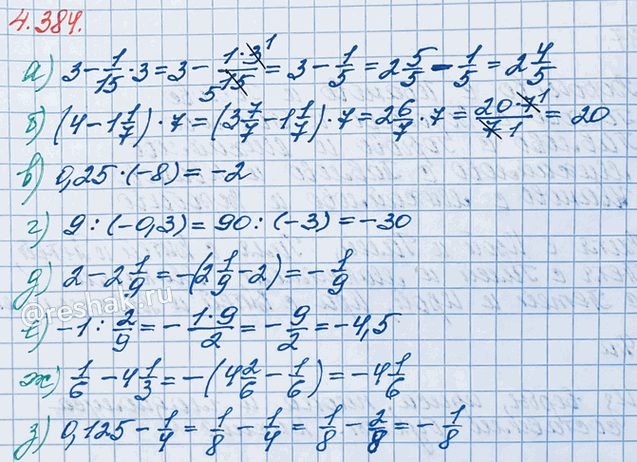 4.384.
а) 3 - 1/15 · 3 = 3 - (1·3 1)/(5 15) = 3 - 1/5 = 2 5/5 - 1/5 = 2 4/5
б) (4 - 1 1/7) · 7 = (3 7/7 - 1 1/7) · 7 = 2 6/7 · 7 = (20·7 1)/(7 1) = 20
в) 0,25 · (-8) = -2
г) 9 : (-0,3) = 90 : (-3) = -30
д) 2 - 2 1/9 = -(2 1/9 - 2) = - 1/9
@reshak.ru
е) -1 : 2/9 = - (1·9)/2 = - 9/2 = -4,5
ж) 1/6 - 4 1/3 = -(4 2/6 - 1/6) = -4 1/6
з) 0,125 - 1/4 = 1/8 - 1/4 = 1/8 - 2/8 = - 1/8